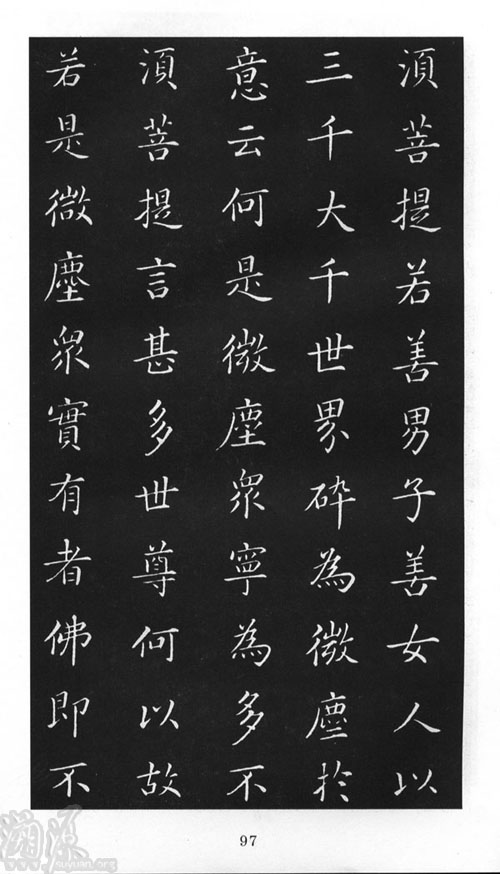 湏菩提若善男子善女人以
三千大千世界碎為微塵於
意云何是微塵衆寧為多不
湏菩提言甚多世尊何以故
若是微塵衆實有者佛即不
97
溯源
suyuan.org